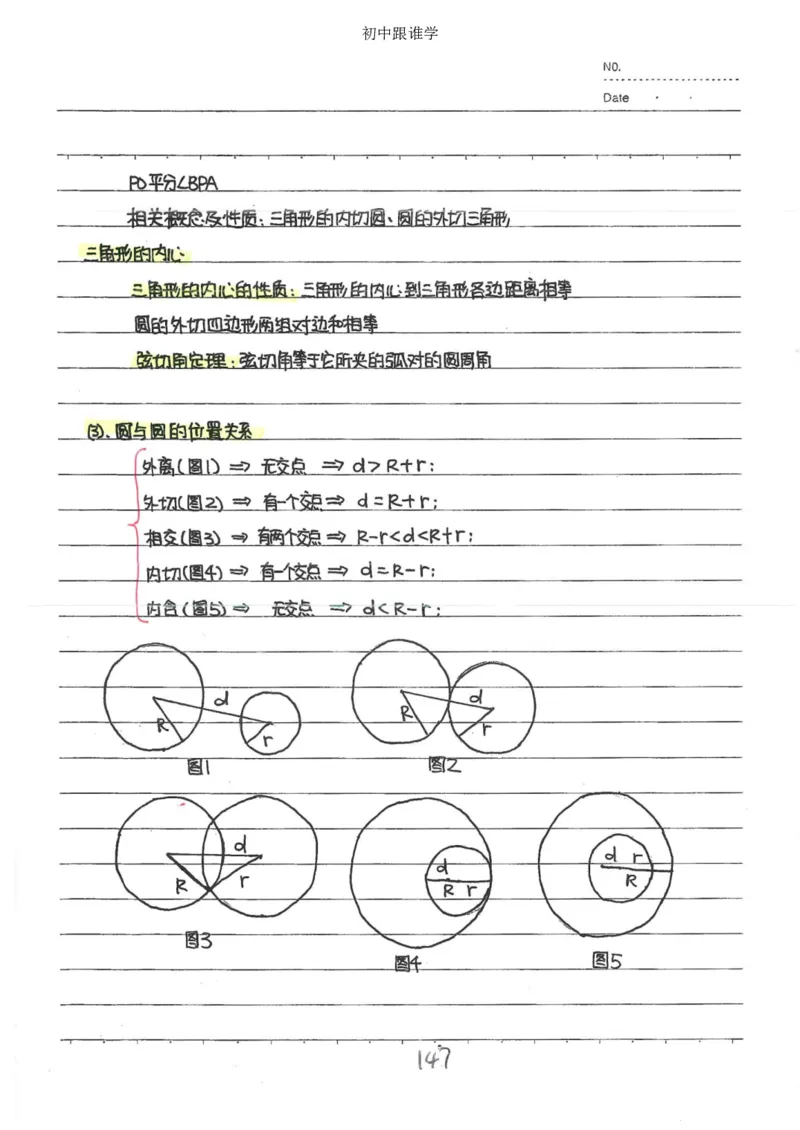 初中跟谁学
NO.
Date
PO平分∠BPA
相关概念及性质：三角形的内切圆、圆的外切三角形
三角形的内心
三角形的内心的性质：三角形的内心到三角形各边距离相等
圆的外切四边形两组对边和相等
弦切角定理：弦切角等于它所夹的弧对的圆周角
(3)、圆与圆的位置关系
外离(图1) ⇒ 无交点 ⇒ d>R+r;
外切(图2) ⇒ 有一个交点 ⇒ d=R+r;
相交(图3) ⇒ 有两个交点 ⇒ R-r<d<R+r;
内切(图4) ⇒ 有一个交点 ⇒ d=R-r;
内含(图5) ⇒ 无交点 ⇒ d<R-r;
d R r
d R r
图1 图2
d R r
d R r
d r R
图3
图4 图5
147